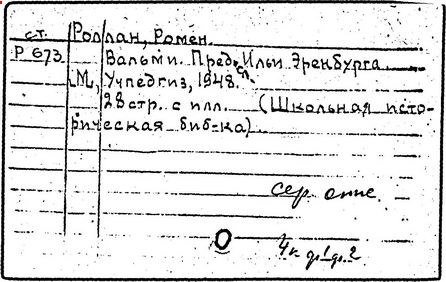 ст. Роллан, Ромен.
Р 673 Вальми. Предисл. Ильи Эренбурга
М., Учпедгиз, 1948.
28 стр. с илл. (Школьная исто-
рическая биб-ка)
сер. отте.
4 к